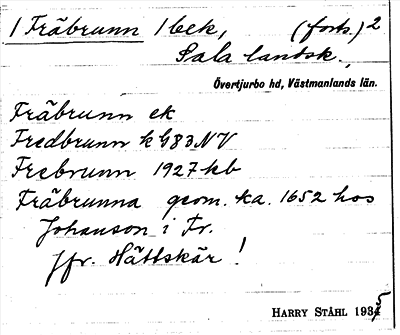 1 Fräbrunn 1 bek, (forts.) 2
Sala landsk.,
Övertjurbo hd, Västmanlands län.
Fräbrunn ek
Fredbrunn k G83NV
Frebrunn 1927 kb
Fräbrunna geom. ka. 1652 hos
Johanson i Fr.
Jfr. Hättskär!
HARRY STÅHL 1935